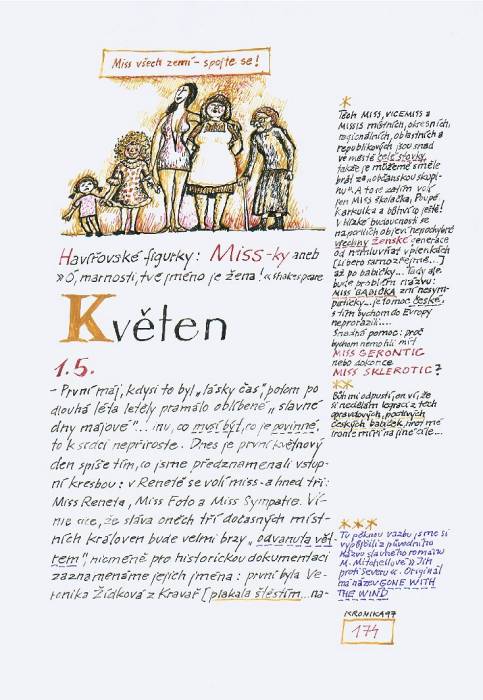 Miss všech zemí – spojte se!
Havířovské figurky: Miss-ky aneb
„Ó, marnosti, tvé jméno je žena!" Shakespeare
Květen
1.5.
- První máj, kdysi to byl „lásky čas", potom po
dlouhá léta letěly pramálo oblíbené „slavné
dny májové"... inu, co musí být, co je povinné,
to k srdci nepřiroste. Dnes je první květnový
den spíše tím, co jsme předznamenali vstup-
ní kresbou: v Renetě se volí miss - a hned tři:
Miss Reneta, Miss Foto a Miss Sympatie. Ví-
me sice, že sláva oněch tří dočasných míst-
ních královen bude velmi brzy „odvanuta vět
rem", nicméně pro historickou dokumentaci
zaznamenáme jejich jména: první byla Ve-
ronika Židková z Kravař [plakala štěstím... na-
*
Těch MISS, VICEMISS a
MISSIS místních, okresních,
regionálních, oblastních a
republikových jsou snad
ve městě celé stovky,
takže je můžeme směle
brát za „občanskou skupi-
nu". A to se zatím volí
jen Miss školačka, Poupě
Karkulka a bůhví co ještě!
V blízké budoucnosti se
na pořilích objeví nepochybně
všechny ženské generace
od nemluvňat v plenkách
[Libero samozřejmě...]
až po babičky... Tady ale
bude problém názvu:
MISS BABIČKA zní nesym-
paticky... je to moc české,
s tím bychom do Evropy
neprorazili...
Snadná pomoc: proč
bychom nemohli mít
MISS GERONTIC
nebo dokonce
MISS SKLEROTIC?
**
Bůh mi odpustí, on ví, že
si nedělám legraci z těch
opravdových, poctivých
českých babiček, hrot mé
ironie míří na jiné cíle...
***
Tu pěknou vazbu jsme si
vypůjčili z původního
názvu slavného románu
M. Mitchellové „Jih
proti Severu". Originál
má název GONE WITH
THE WIND
KRONIKA 97
174